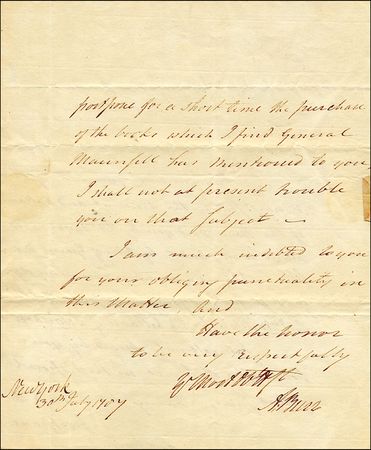 postpone for a short time the purchase
of the books which I find General
Maunsell has mentioned to you
I shall not at present trouble
you on that subject —
I am much indebted to you
for your obliging punctuality in
this Matter, and
Have the honor
to be very respectfully
Yr Most Ob St
A Burr
New York
30th July 1787